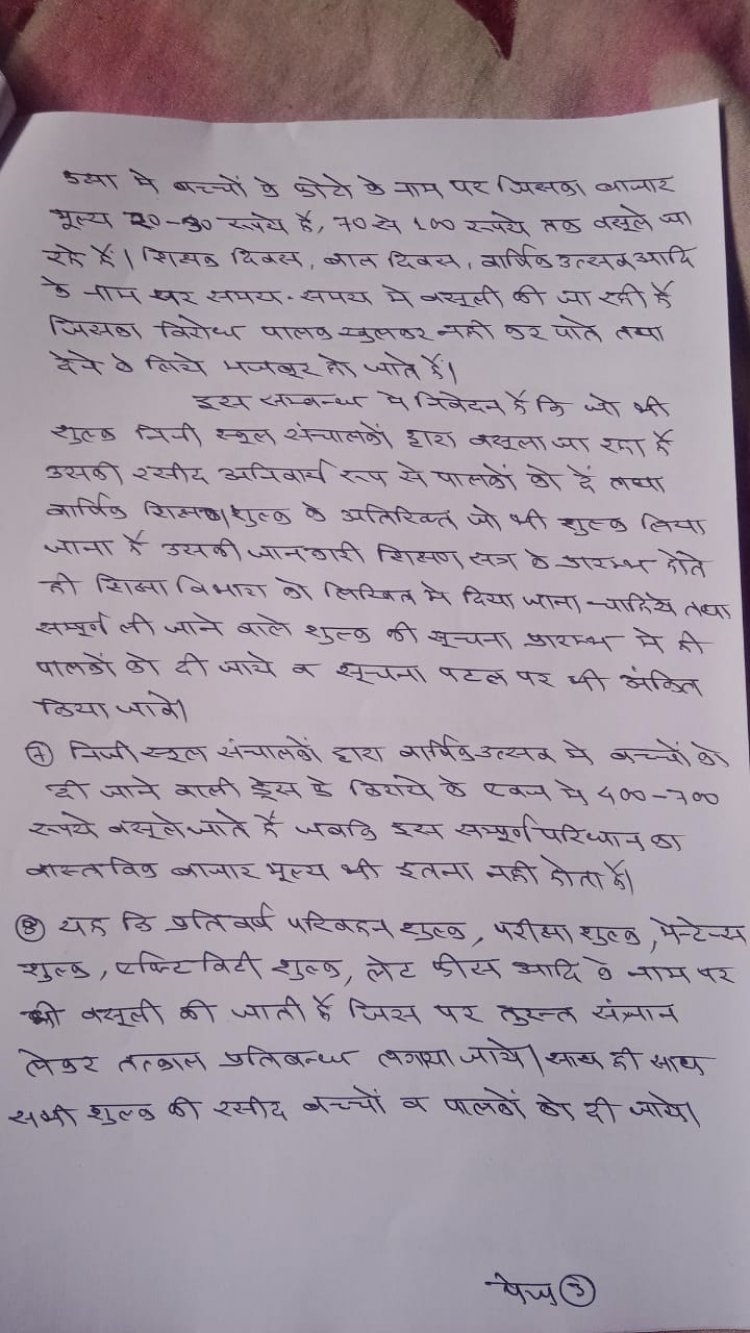 कक्षा में बच्चों के फोटो के नाम पर जिसका बाजार
मूल्य 20-30 रूपये है, 70 से 100 रूपये तक वसूले जा
रहे हैं। शिक्षक दिवस, बाल दिवस, वार्षिक उत्सव आदि
के नाम पर समय-समय में वसूली की जा रही है
जिसका विरोध पालक खुलकर नही कर पाते तथा
देने के लिये मजबूर हो जाते हैं।
इस सम्बन्ध में निवेदन है कि जो भी
शुल्क निजी स्कूल संचालकों द्वारा वसूला जा रहा है
उसकी रसीद अनिवार्य रूप से पालकों को दें तथा
वार्षिक शिक्षण शुल्क के अतिरिक्त जो भी शुल्क लिया
जाना है उसकी जानकारी शिक्षण सत्र के प्रारम्भ होते
ही शिक्षा विभाग को लिखित में दिया जाना चाहिये तथा
सम्पूर्ण ली जाने वाले शुल्क की सूचना प्रारम्भ में ही
पालकों को दी जाये व सूचना पटल पर भी अंकित
किया जावे।
7 निजी स्कूल संचालकों द्वारा वार्षिक उत्सव में बच्चों को
दी जाने वाली ड्रेस के किराये के एवज में 400-700
रूपये वसूले जाते हैं जबकि इस सम्पूर्ण परिधान का
वास्तविक बाजार मूल्य भी इतना नही होता है।
8 यह कि प्रतिवर्ष परिवहन शुल्क, परीक्षा शुल्क, मेन्टेनेन्स
शुल्क, एक्टिविटी शुल्क, लेट फीस आदि के नाम पर
भी वसूली की जाती है जिस पर तुरन्त संज्ञान
लेकर तत्काल प्रतिबन्ध लगाया जाये। साथ ही साथ
सभी शुल्क की रसीद बच्चों व पालकों को दी जाये।
पेज 3